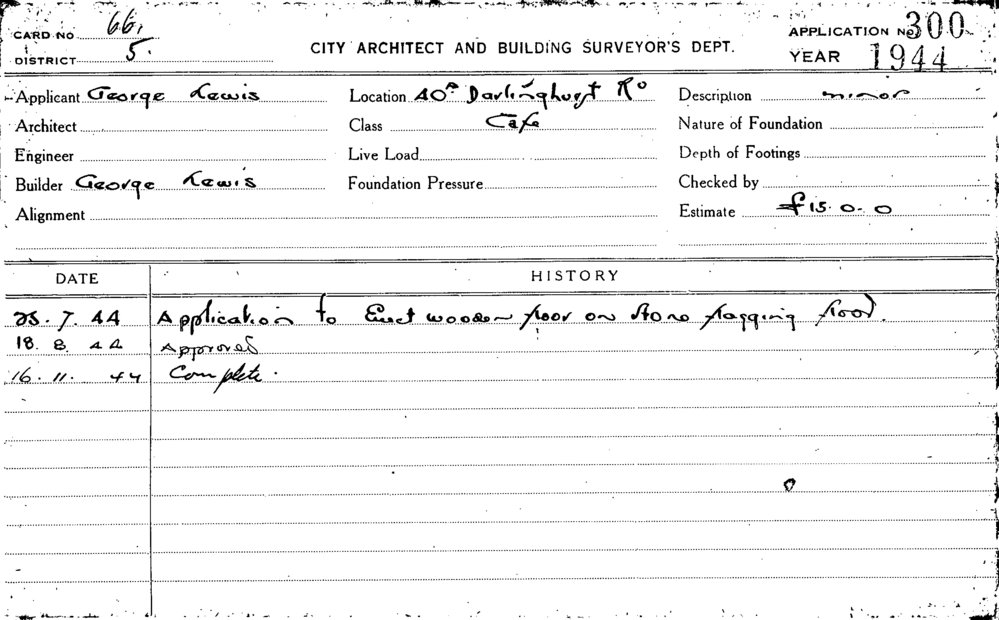 CARD NO 66.
DISTRICT 5.
CITY ARCHITECT AND BUILDING SURVEYOR'S DEPT.
APPLICATION No 300
YEAR 1944
Applicant George Lewis
Location 40A Darlinghurst Rd
Description minor
Architect
Class Cafe
Nature of Foundation
Engineer
Live Load
Depth of Footings
Builder George Lewis
Foundation Pressure
Checked by
Alignment
Estimate £15.0.0
DATE HISTORY
25.7.44 Application to Erect wooden floor on stone flagging
18.8.44 Approved
16.11.44 Complete.